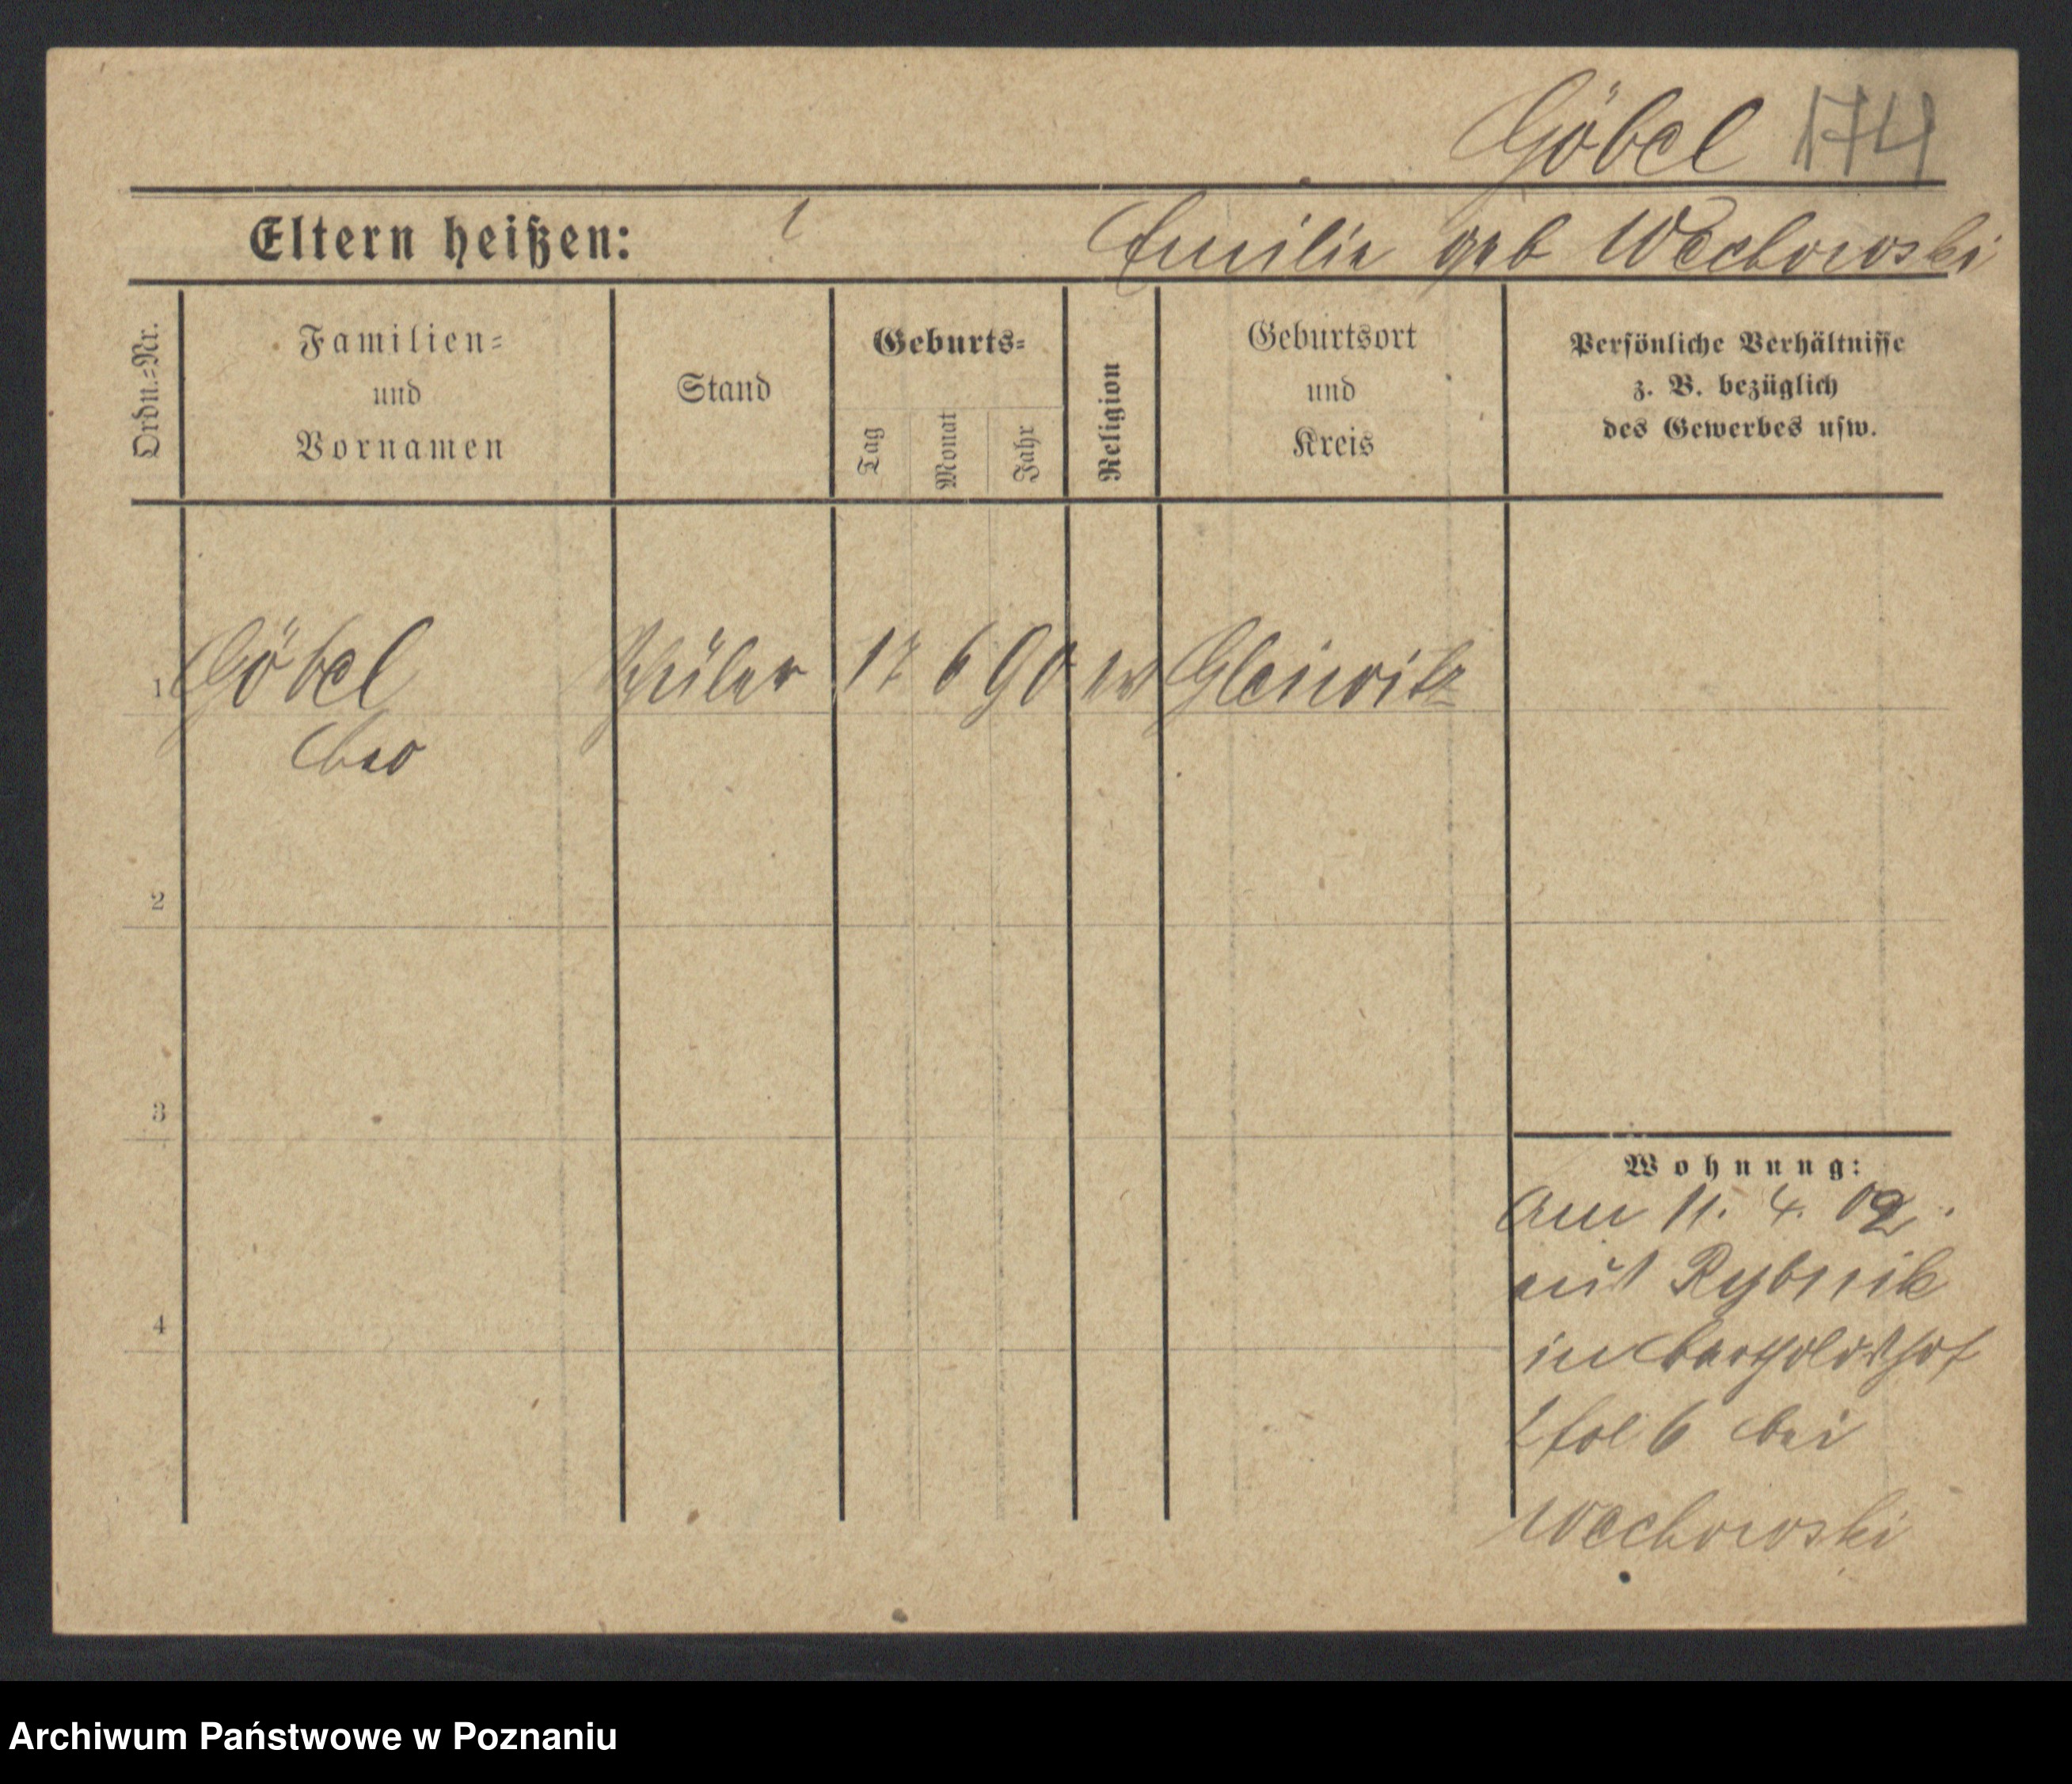 Göbel 174
Eltern heißen: Emilie geb Wechowski
Ordn.=Nr.
Familien=
und
Vornamen
Stand
Geburts=
Tag
Monat
Jahr
Religion
Geburtsort
und
Kreis
Persönliche Verhältnisse
z. B. bezüglich
des Gewerbes usw.
1 Göbel Schüler 17 6 90 ev Gleiwitz
2
3
4
Wohnung:
Am 11. 4. 02.
aus Rybnik
in Bartholdshof
6 bei
Wechowski
Archiwum Państwowe w Poznaniu